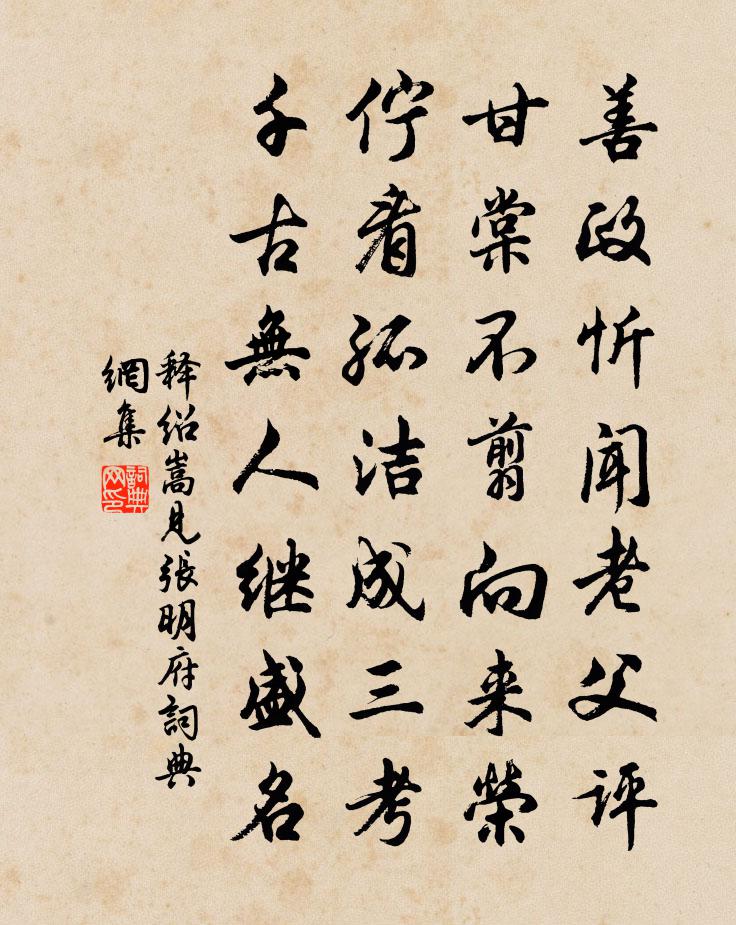 善政忻闻老父评
甘棠不翦向来榮
佇看孤洁成三考
千古無人继盛名
释绍嵩見張明府詞典
網集
詞典
网印